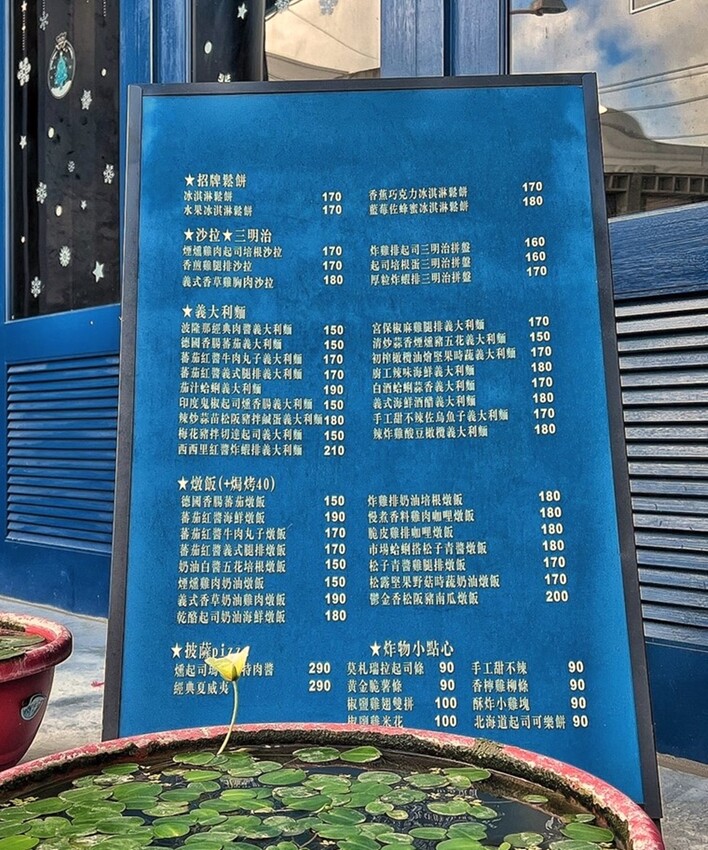 ★招牌鬆餅
冰淇淋鬆餅 170
水果冰淇淋鬆餅 170
香蕉巧克力冰淇淋鬆餅 170
藍莓佐蜂蜜冰淇淋鬆餅 180
★沙拉★三明治
煙燻雞肉起司培根沙拉 170
香煎雞腿排沙拉 170
義式香草雞胸肉沙拉 180
炸雞排起司三明治拼盤 160
起司培根蛋三明治拼盤 160
厚粒炸蝦排三明治拼盤 170
★義大利麵
波隆那經典肉醬義大利麵 150
德國香腸蕃茄義大利麵 150
蕃茄紅醬牛肉丸子義大利麵 170
蕃茄紅醬義式腿排義大利麵 170
茄汁蛤蜊義大利麵 190
印度鬼椒起司燻香腸義大利麵 150
辣炒蒜苗松阪豬拌鹹蛋義大利麵 180
梅花豬拌切達起司義大利麵 150
西西里紅醬炸蝦排義大利麵 210
宮保椒麻雞腿排義大利麵 170
清炒蒜香煙燻豬五花義大利麵 150
初榨橄欖油燴堅果時蔬義大利麵 170
廚工辣味海鮮義大利麵 180
白酒蛤蜊蒜香義大利麵 170
義式海鮮酒醋義大利麵 180
手工甜不辣佐烏魚子義大利麵 170
辣炸雞酸豆橄欖義大利麵 180
★燉飯(+焗烤40)
德國香腸蕃茄燉飯 150
蕃茄紅醬海鮮燉飯 190
蕃茄紅醬牛肉丸子燉飯 170
蕃茄紅醬義式腿排燉飯 170
奶油白醬五花培根燉飯 150
煙燻雞肉奶油燉飯 150
義式香草奶油雞肉燉飯 190
乾酪起司奶油海鮮燉飯 180
炸雞排奶油培根燉飯 180
慢煮香料雞肉咖哩燉飯 180
脆皮雞排咖哩燉飯 180
市場蛤蜊搭松子青醬燉飯 180
松子青醬雞腿排燉飯 170
松露堅果野菇時蔬奶油燉飯 170
鬱金香松阪豬南瓜燉飯 200
★披薩piz
燻起司瑪 特肉醬 290
經典夏威夷 290
★炸物小點心
莫札瑞拉起司條 90
黃金脆薯條 90
椒鹽雞翅雙拼 100
椒鹽雞米花 100
手工甜不辣 90
香檸雞柳條 90
酥炸小雞塊 90
北海道起司可樂餅 90